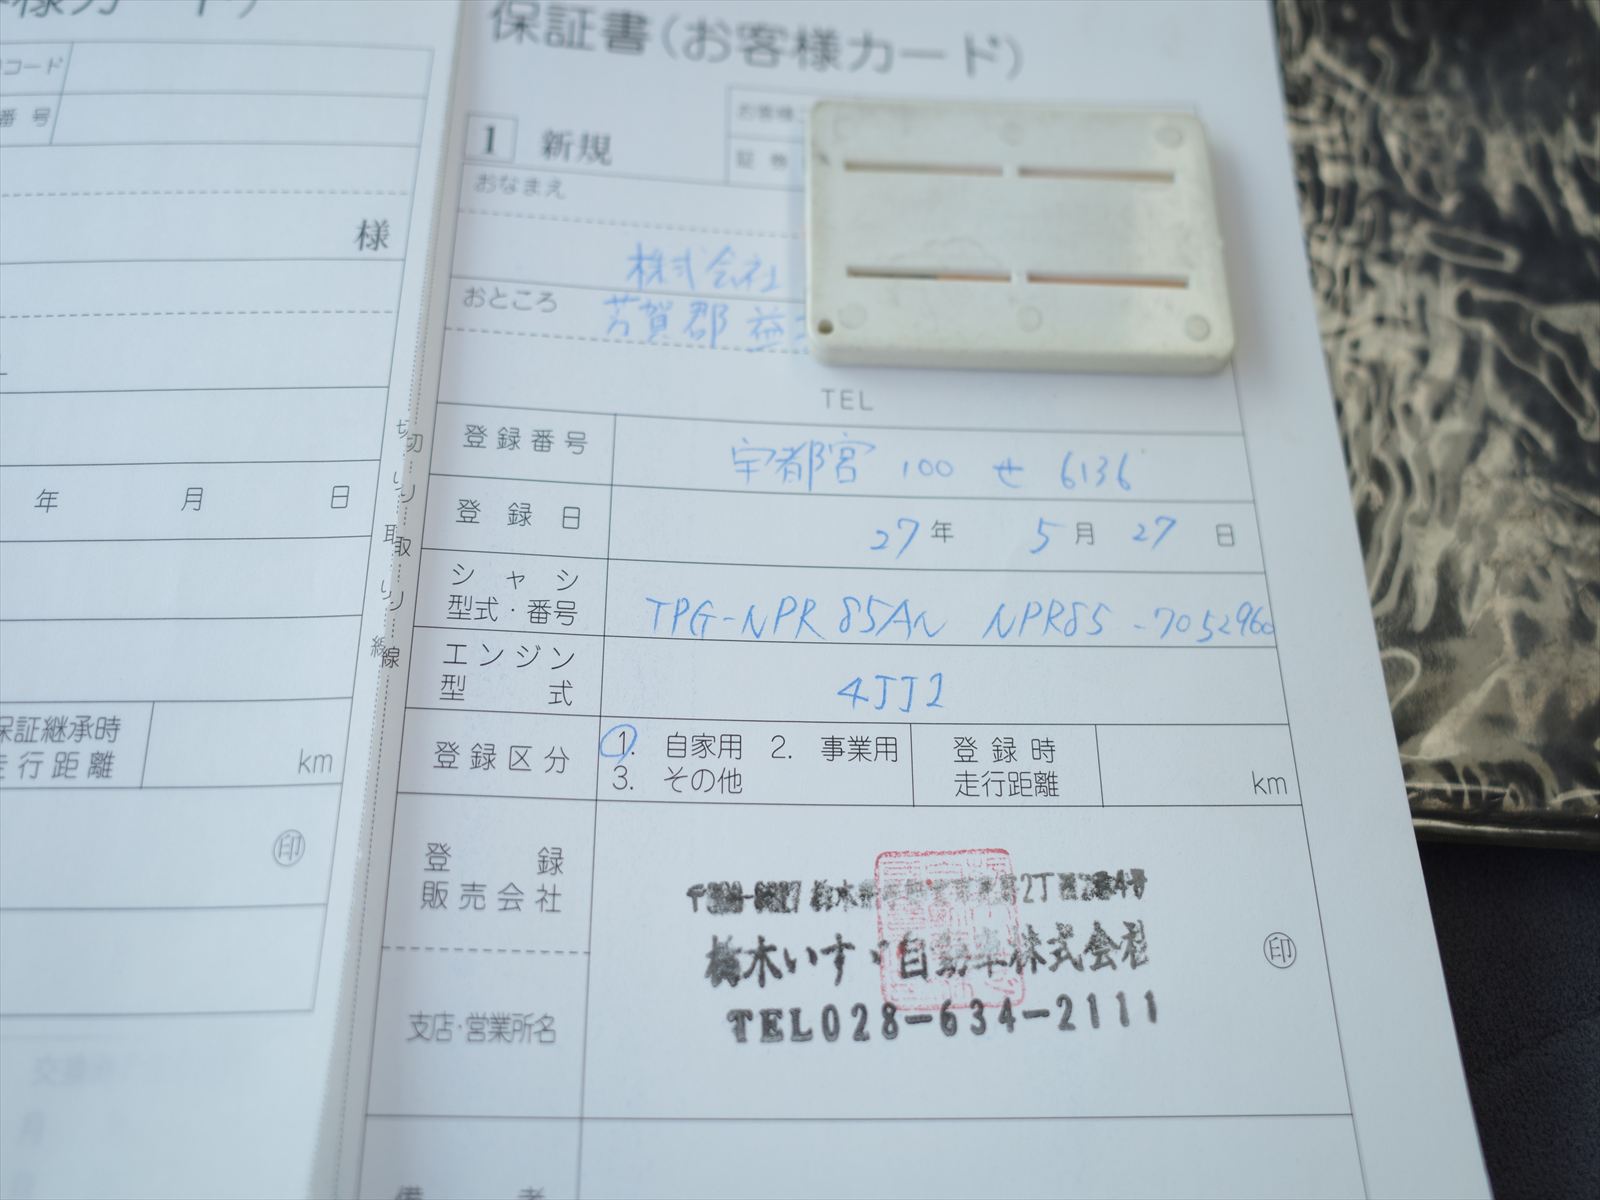 様カード)
コード
番号
様
年 月 日
保証継承時
走行距離 km
印
切り取り線
保証書(お客様カード)
1 新規
お客様
証券
おなまえ
株式会社
おところ
芳賀郡 益
TEL
登録番号 宇都宮 100 せ 6136
登録日 27年 5月 27日
シャシ
型式・番号 TPG-NPR85AN NPR85-7052960
エンジン
型式 4JJ1
登録区分 1. 自家用 2. 事業用
3. その他
登録時
走行距離 km
登録
販売会社
栃木いすゞ自動車株式会社
TEL028-634-2111
印
支店・営業所名
備考